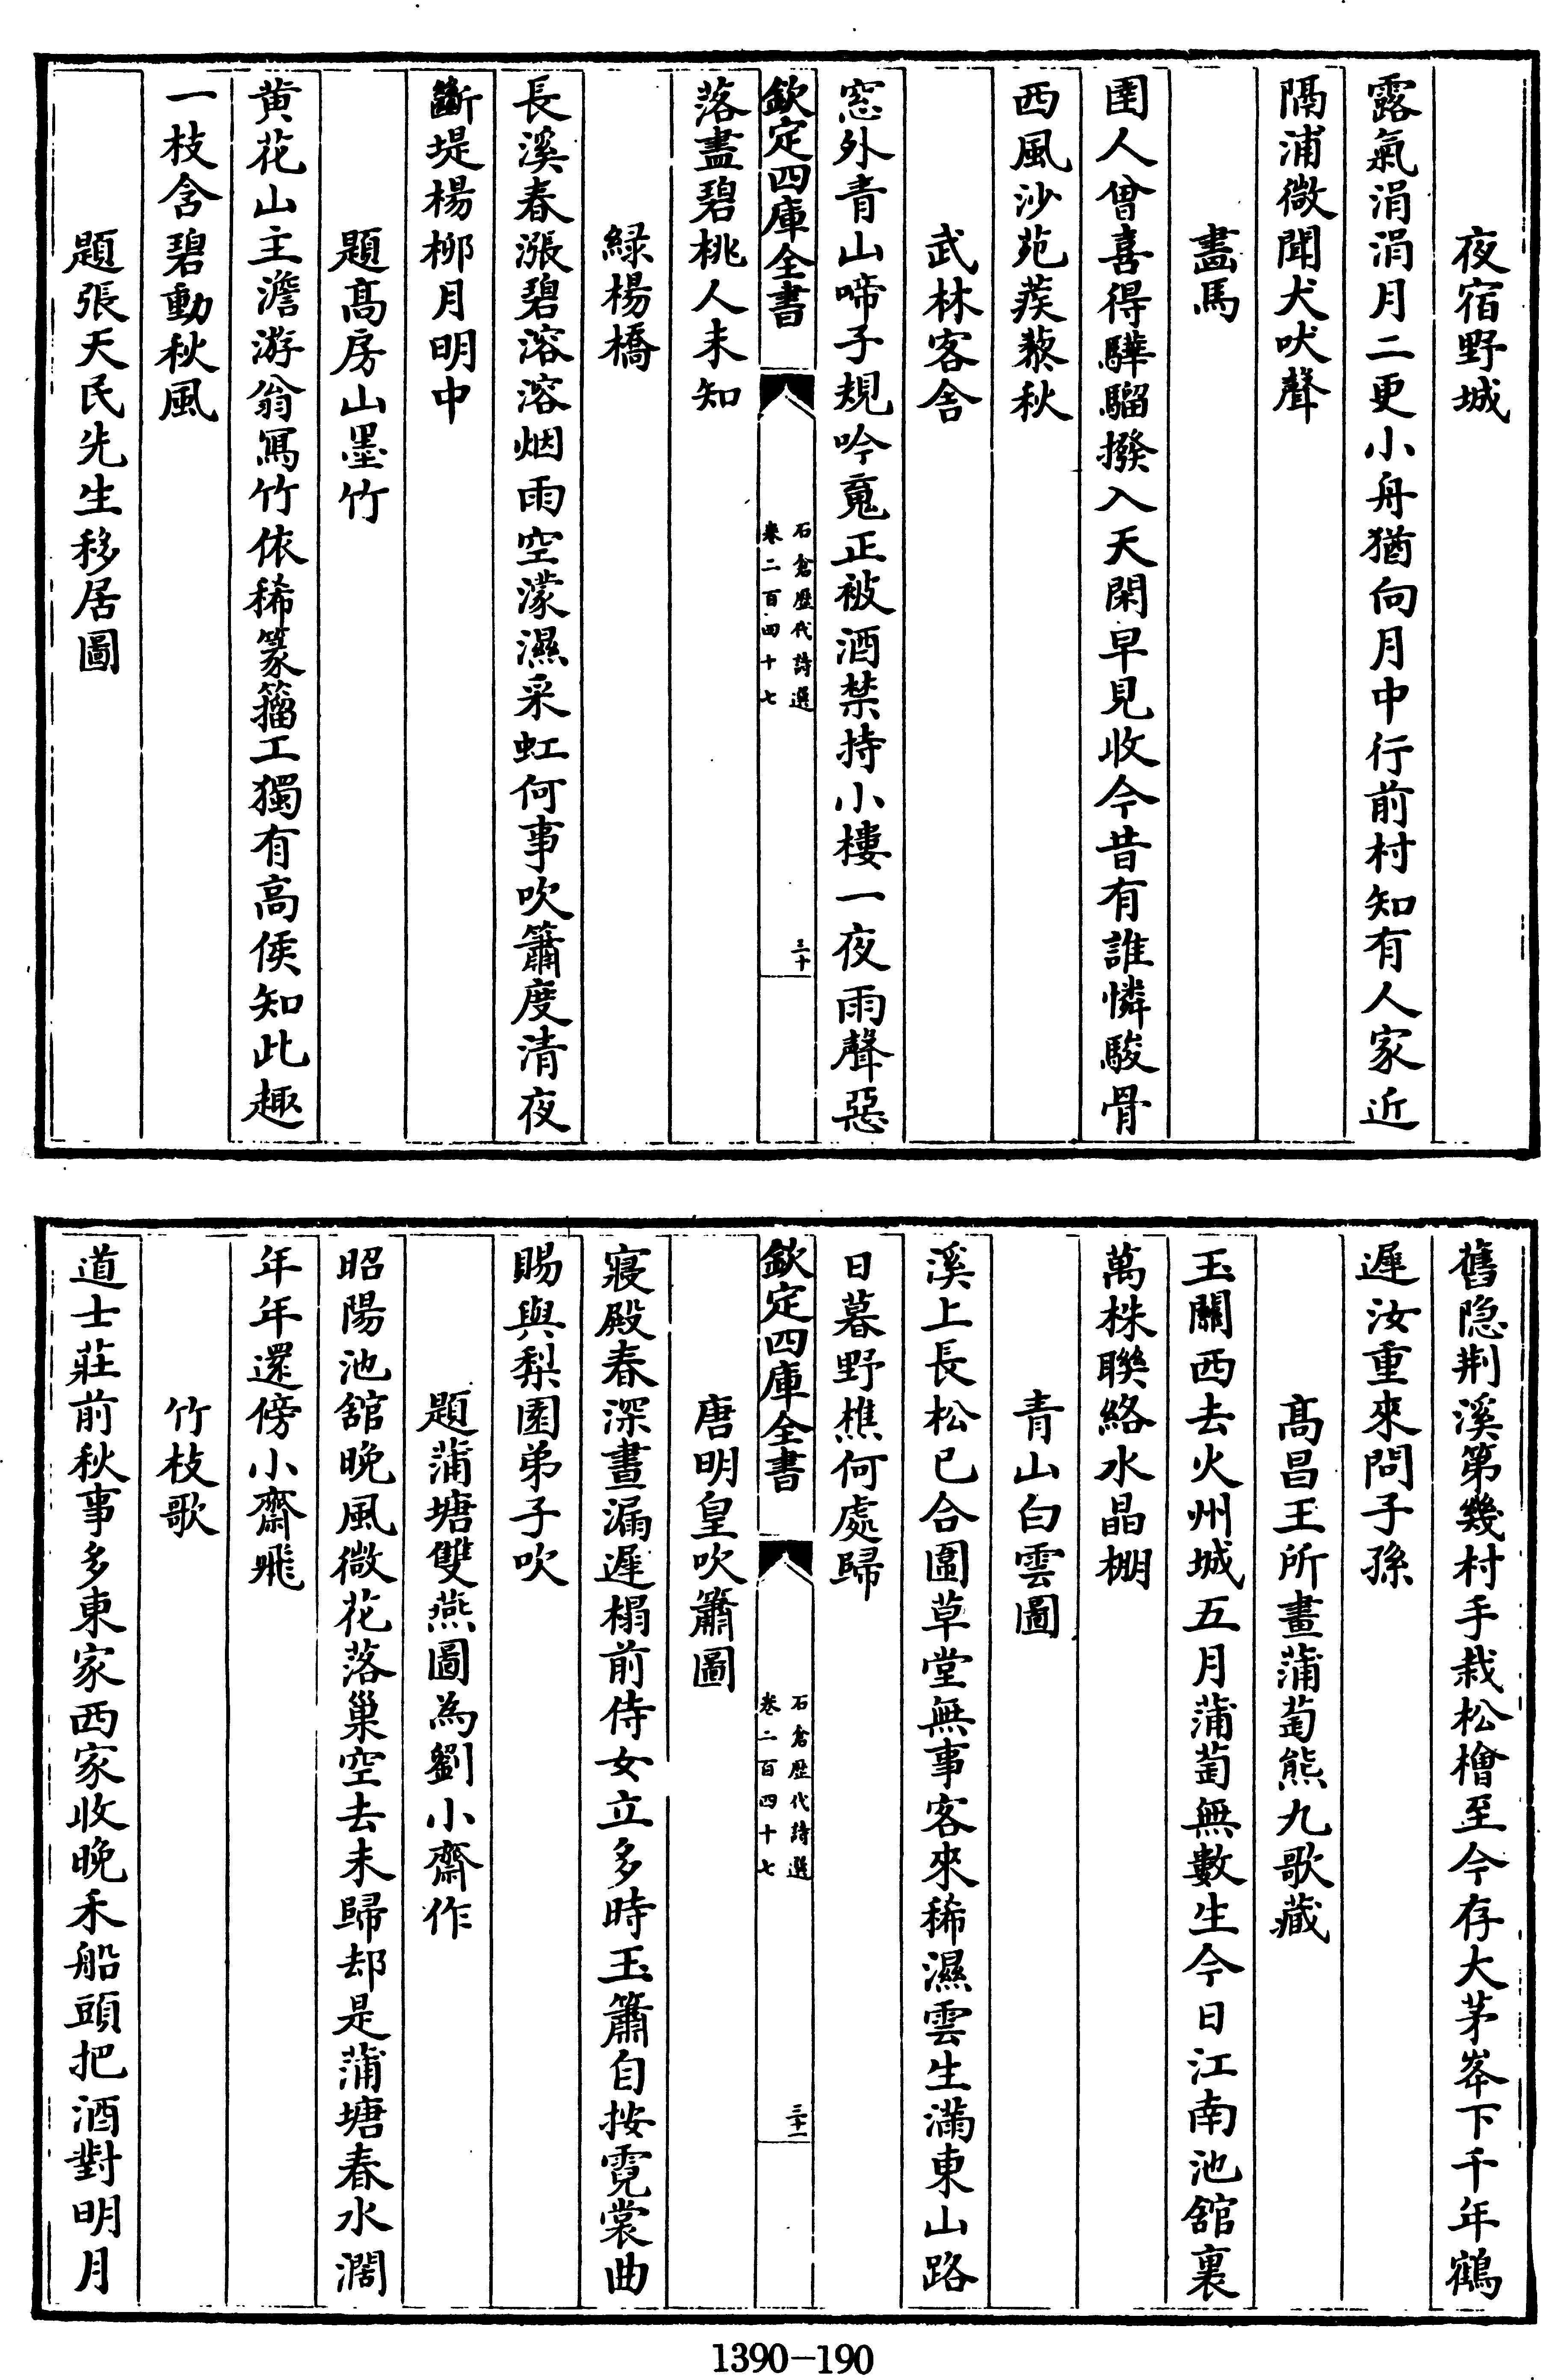 夜宿野城
露氣涓涓月二更小舟猶向月中行前村知有人家近
隔浦微聞犬吠聲
畫馬
圉人曾喜得驊騮撥入天閑早見收今昔有誰憐駿骨
西風沙苑蒺藜秋
武林客舍
窓外青山啼子規吟竟正被酒禁持小樓一夜雨聲惡
欽定四庫全書
石倉歷代詩選
卷二百四十七
三十
落盡碧桃人未知
緑楊橋
長溪春漲碧溶溶烟雨空濛濕采虹何事吹簫度清夜
斷堤楊柳月明中
題髙房山墨竹
黄花山主澹游翁寫竹依稀篆籀工獨有高侯知此趣
一枝含碧動秋風
題張天民先生移居圖
舊隐荆溪第幾村手栽松檜至今存大茅峯下千年鶴
遲汝重來問子孫
髙昌王所畫蒲萄熊九歌藏
玉關西去火州城五月蒲萄無數生今日江南池舘裏
萬株聯絡水晶棚
青山白雲圖
溪上長松已合圍草堂無事客來稀濕雲生滿東山路
日暮野樵何處歸
欽定四庫全書
石倉歷代詩選
卷二百四十七
三十一
唐明皇吹簫圖
寢殿春深晝漏遲榻前侍女立多時玉簫自按霓裳曲
賜與梨園弟子吹
題蒲塘雙燕圖為劉小齋作
昭陽池舘晚風微花落巢空去未歸却是蒲塘春水濶
年年還傍小齋飛
竹枝歌
道士莊前秋事多東家西家收晚禾船頭把酒對明月
1390-190